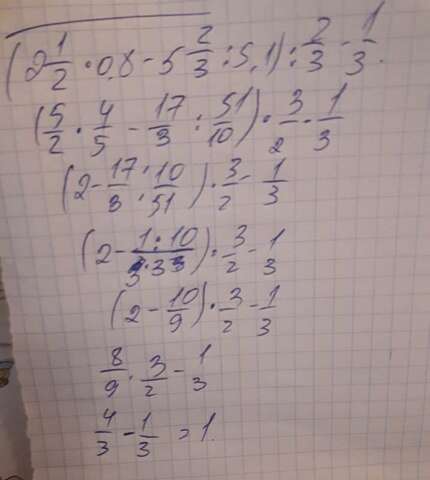 (2 1/2 · 0,8 - 5 2/3 : 5,1) : 2/3 - 1/3.
(5/2 · 4/5 - 17/3 : 51/10) · 3/2 - 1/3
(2 - 17/3 · 10/51) · 3/2 - 1/3
(2 - 1·10/3·3) · 3/2 - 1/3
(2 - 10/9) · 3/2 - 1/3
8/9 · 3/2 - 1/3
4/3 - 1/3 = 1.